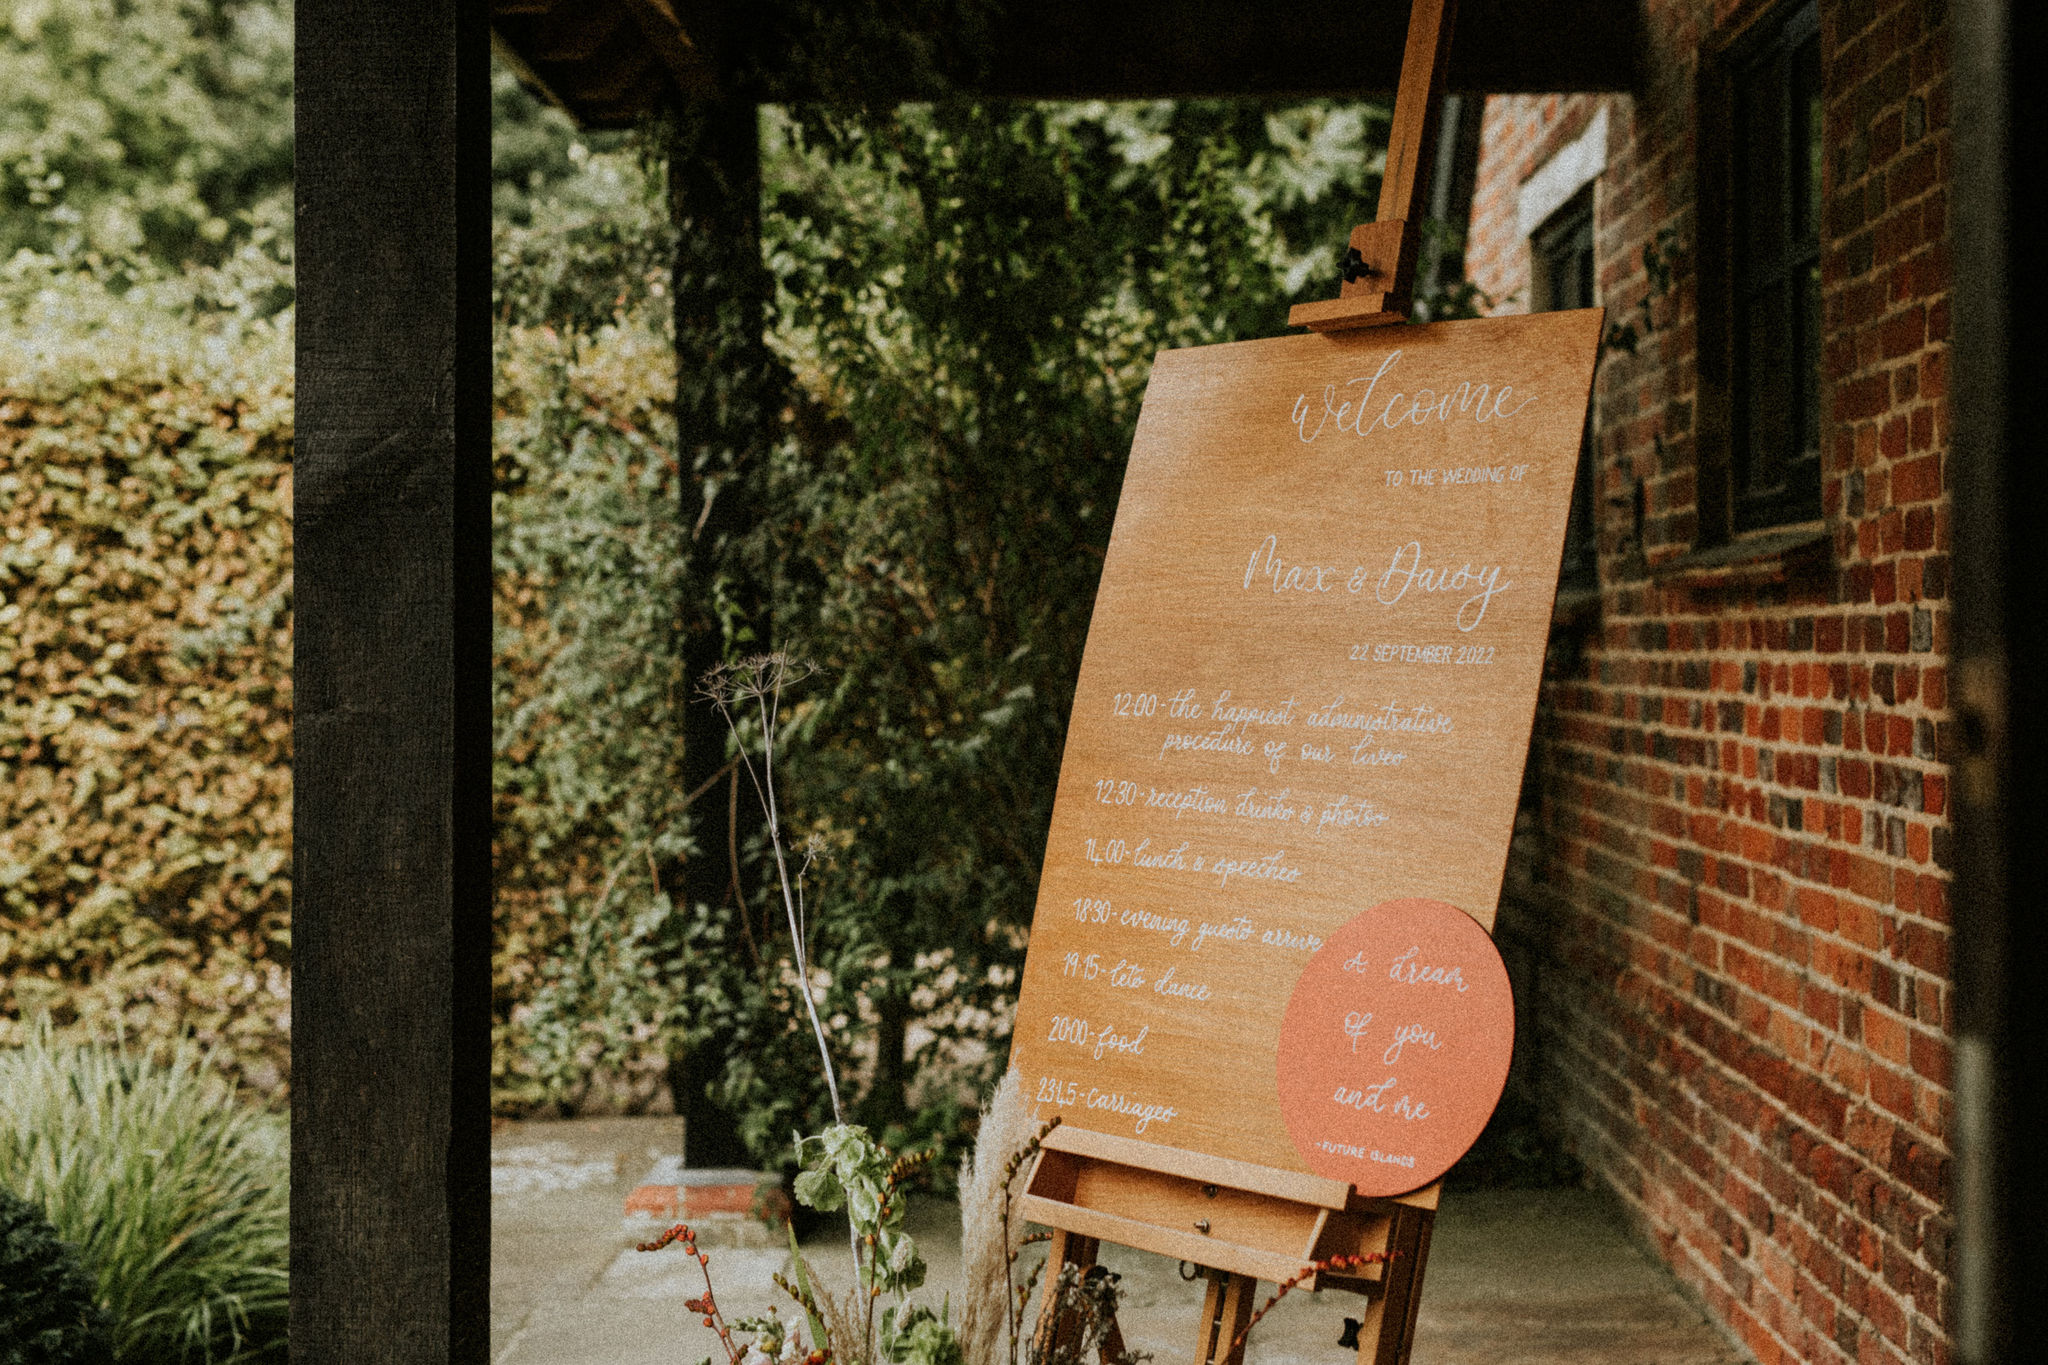 welcome
TO THE WEDDING OF
Max & Daisy
22 SEPTEMBER 2022
12:00 - the happiest administrative
procedure of our lives
12:30 - reception drinks & photos
14:00 - lunch & speeches
18:30 - evening guests arrive
19:15 - lets dance
20:00 - food
23:45 - Carriages
A dream
of you
and me
- FUTURE ISLANDS